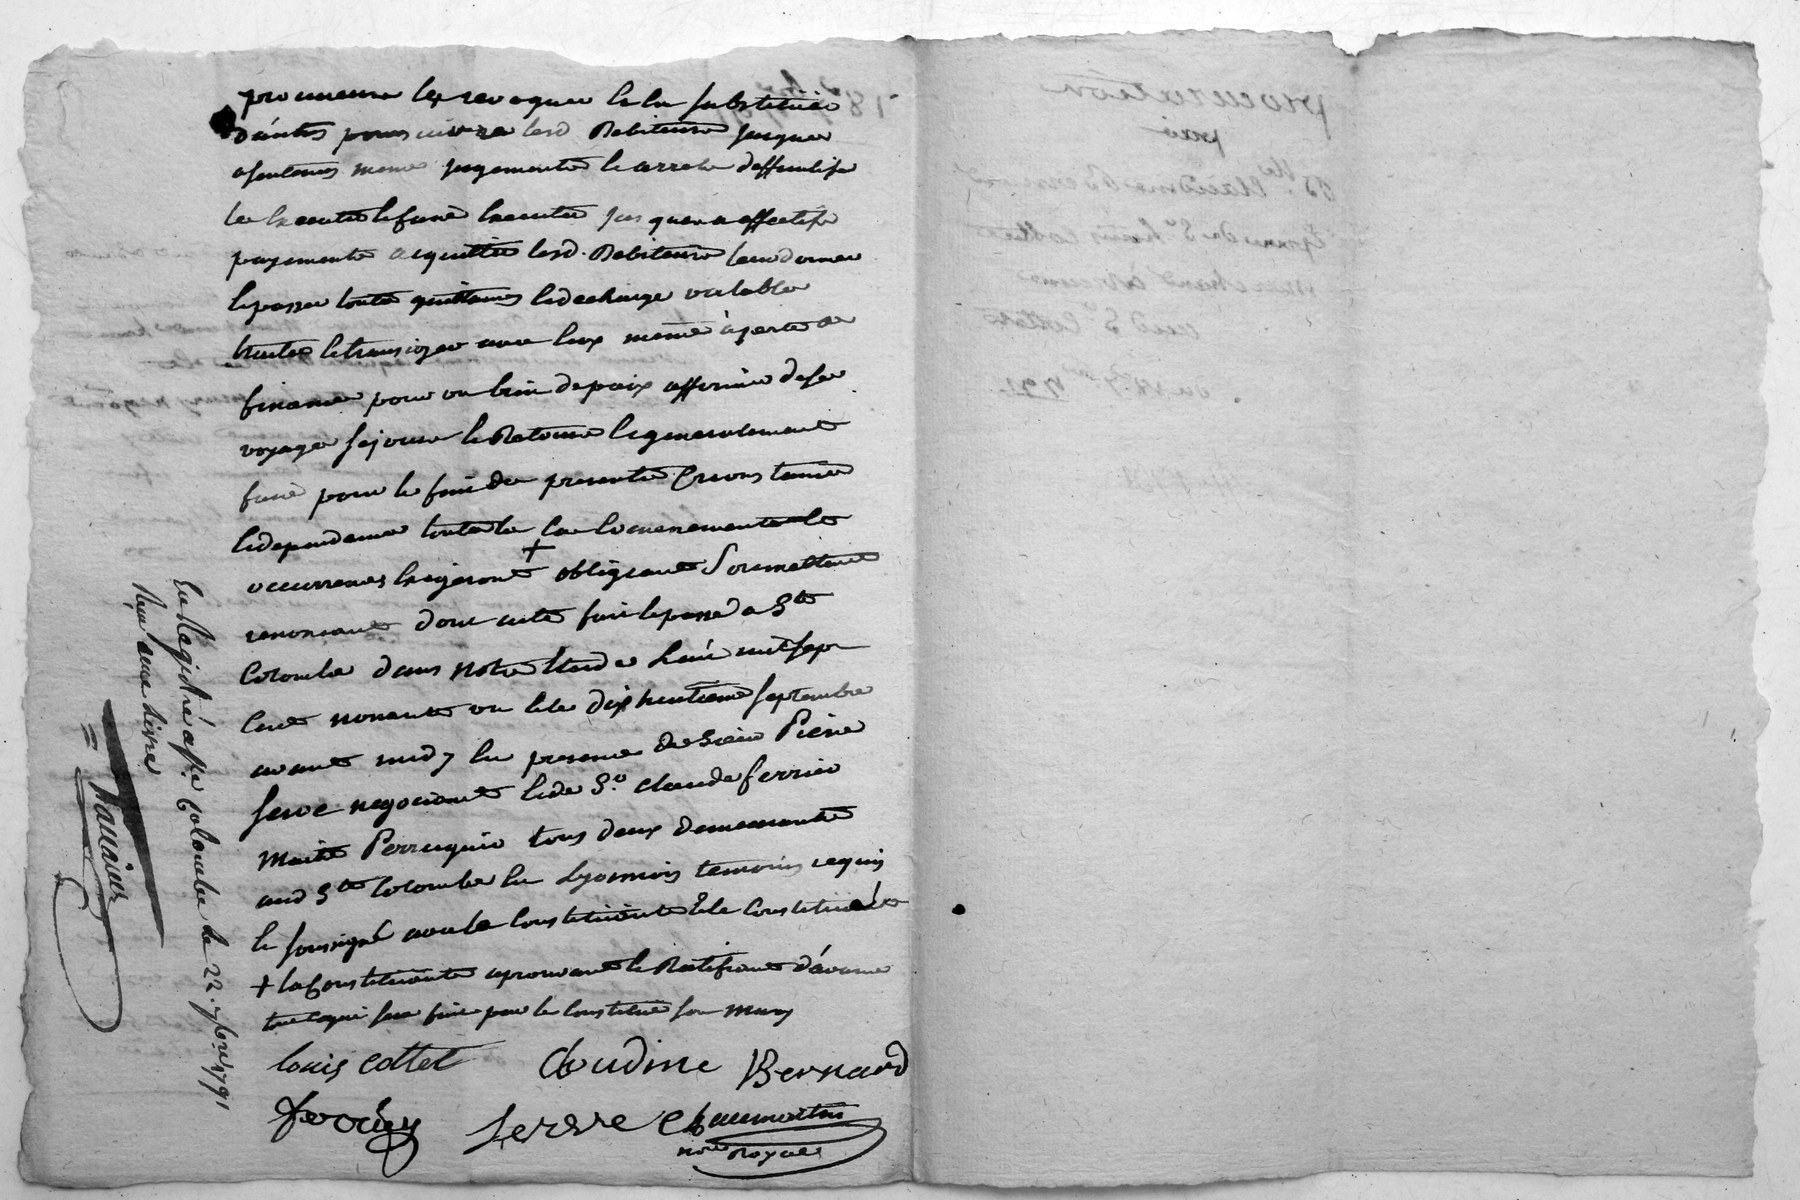 procureurs les revoquer et en substituer
d'autres poursuivre lesd Debiteurs jusques
a sentences meme jugements et arrets deffinitifs
les executer et faire executer jusques a effectifs
payements acquitter lesd. Debiteurs leur donner
et passer toutes quittances et decharge valables
traiter et transiger avec eux meme à perte de
finance pour un bien de paix affirmer de ses
voyage sejour et Retour et generalement
faire pour le fait des presentes Circonstances
et dependances toutes les
occurrences exigeront + obligeant Soumettant
renonceant dont acte fait et passé a Ste
Colombe dans notre Etude L'an mil sept
cent nonante un et le dix huitieme septembre
avant midy en presence de Sieur Pierre
Serve negociant et de Sr. Claude ferrier
Maitre Perruquier tous deux demeurants
aud Ste Colombe en Lyonnois temoins requis
et soussignés avec la Constituante et le Constitué
+ la Constituante aprouvant et Ratifiant d'avance
tout ce qui sera fait par le Constitué son mary
louis cottet Claudine Bernard
ferrier serve Chaumartin
nore Royal
Enregistré a Ste Colombe le 22. 7bre 1791
Reçu une livre
procuration
par
Claudine Bernard
Epouse de Sr Louis Cottet
aud Sr Cottet
du 18 7bre 1791